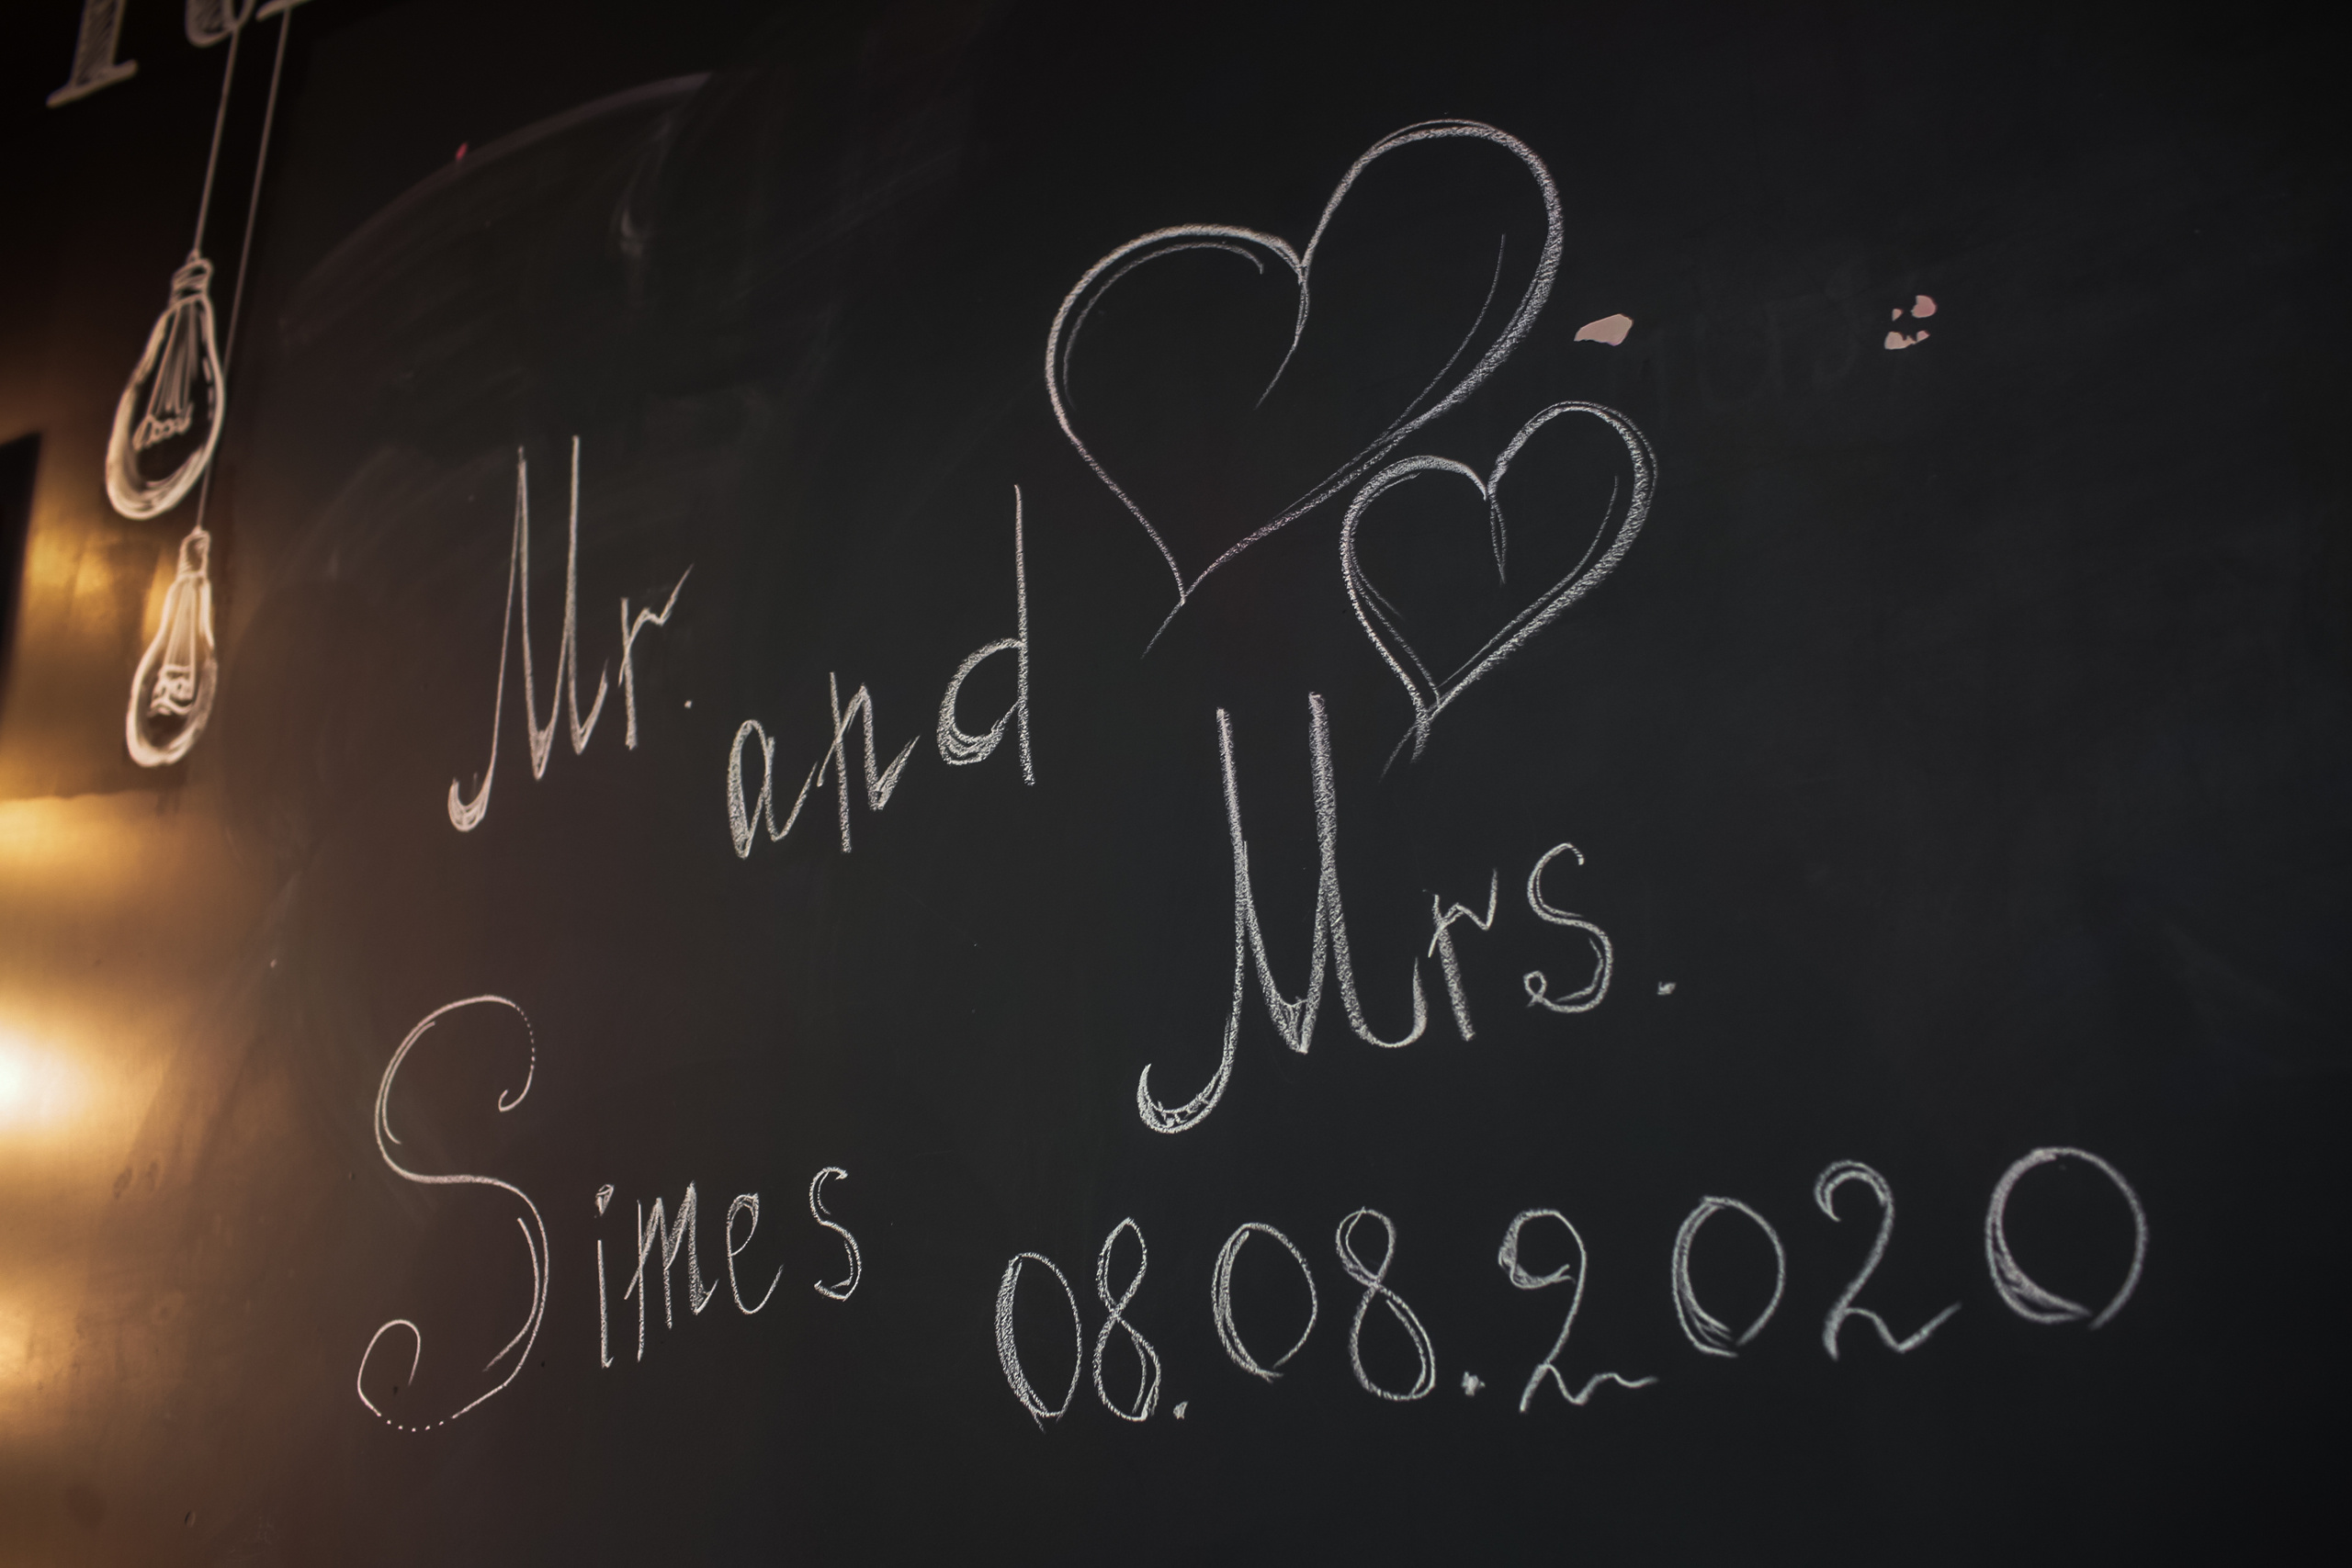 Mr. and Mrs.
Simes 08.08.2020